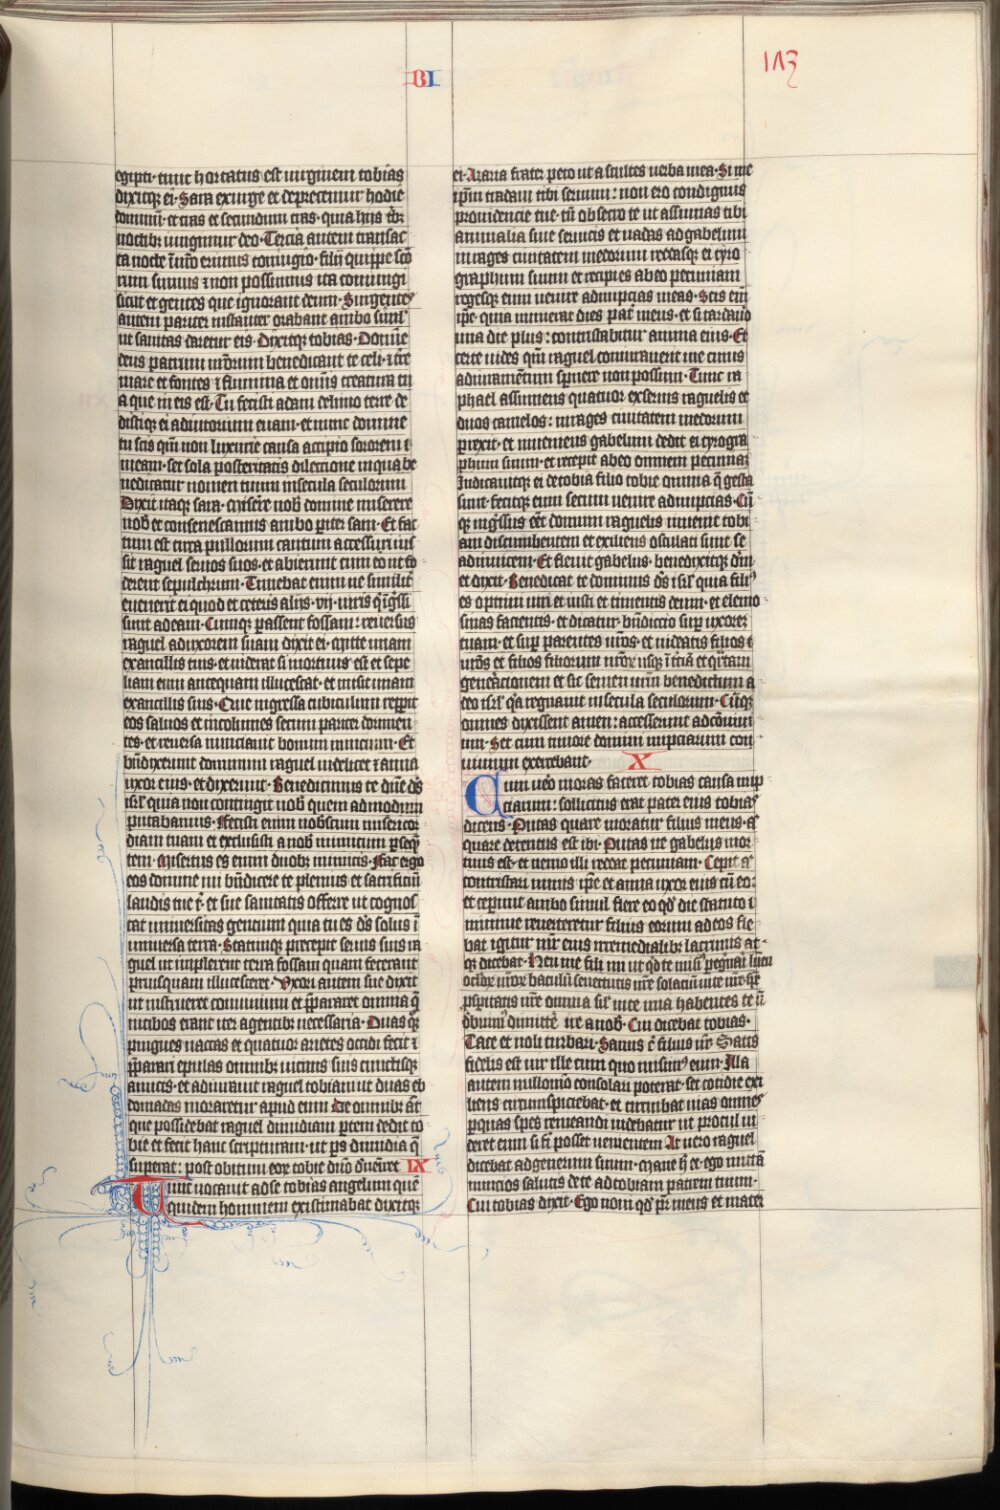 BI
egipti· tunc hortatus est uirginem tobias
dixitq; ei· Sara exurge et deprecemur hodie
dominū· et cras et secundum cras· quia hijs tb;
noctib; iungimur deo· Tercia autem transac
ta nocte ī uīo erimus coniugio· filij quippe scō
rum sumus ⁊ non possumus ita coniungi
sicut et gentes que ignorant deum· Surgentes
autem pariter instanter orabant ambo simul
ut sanitas daretur eis· Dixitq; tobias· Domine
deus patrum nrōrum benedicant te celi· ⁊ tre
mare et fontes ⁊ flumina et omīs creatura tu
a que in eis est· Tu fecisti adam delimo terre de
distiq; ei adiutorium euam· et nunc domine
tu scis qm̄ non luxurie causa accipio sororem
meam· set sola posteritatis dileccione inqua be
nedicatur nomen tuum insecula seculorum
Dixit itaq; sara· Miserē nob̄ domine miserere
nob̄ et consenescamus ambo pit̄er sani· Et fac
tum est circa pullorum cantum accessiri ius
sit raguel seruos suos· et abierunt cum eo ut fo
derent sepulchrum· Timebat enim ne similit̄
euenerit ei quod et ceteris alijs· vij· uiris q̄ īgssi
sunt adeam· Cumq; passent fossam: reuersus
raguel aduxorem suam dixit ei· Mitte unam
exancillis tuis· et uideat si mortuus est et sepe
liam eum antequam illucescat· et misit unam
exancillis suis· Que ingressa cubiculum reppit
eos saluos et incolumes secum pariter dormien
tes· et reuersa nunciauit bonum nuncium· Et
bn̄dixerunt dominum raguel uidelicet ⁊ anna
uxor eius· et dixerunt· Benedicimus te dn̄e ds̄
isrl̄ quia non contingit nob̄ quem admodum
putabamus· Fecisti enim nobiscum misericor
diam tuam et exclusisti a nob̄ inimicum pseq̄
tem· Misertus es enim duob; unicis· Fac ergo
eos domine mi bn̄dicere te plenius et sacrificiū
laudis tue t̄· et sue sanitatis offerre ut cognos
cat uniuersitas gencium quia tu es ds̄ solus ī
uniuersa terra· Statimq; precepit seruis suis ra
guel ut implerent terra fossam quam fecerant
priusquam illucesceret· Vxori autem sue dixit
ut instrueret conuiuium et p̄pararet omnia q̄
incibos erant iter agentib; necessaria· Duas q̄;
pingues uaccas et quatuor arietes occidi fecit ⁊
p̄parari epulas omnib; uicinis suis cunctisq;
amicis· et adiurauit raguel tobiam ut duas eb
domadas moraretur apud eum· De omnib; at̄
que possidebat raguel dimidiam ptem dedit to
bie et fecit hanc scripturam· ut ps dimidia q̄
supererat: post obitum eor̄ tobie dn̄io d̄ueniret IX
Tunc uocauit adse tobias angelum quē
quidem hominem existimabat dixitq;
113
ei· Azaria frater peto ut ascultes uerba mea· Si me
ipm̄ tradam tibi seruum: non ero condignus
prouidencie tue· tn̄ obsecro te ut assumas tibi
animalia siue seruicia et uadas adgabelum
inrages ciuitatem medorum reddasq; ei cyro
graphum suum et recipies abeo pecuniam
rogesq; eum uenire adnupcias meas· Scis enī
ipe· quia numerat dies pat̄ meus· et si tardauo
una die plus: contristabitur anima eius· Et
certe uides qm̄ raguel coniurauerit me cuius
adiuramentum sp̄nere non possum· Tunc ra
phael assumens quatuor exseruis raguelis et
duos camelos: inrages ciuitatem medorum
prexit· et inueniens gabelum dedit ei cyrogra
phum suum· et recepit abeo omnem pecuniaz
Indicauitq; ei detobia filio tobie omnia q̄ gesta
sunt· fecitq; eum secum uenire adnupcias· Cū
q; ingssus eēt domum raguelis inuenit tobi
am discumbentem et exiliens osculati sunt se
adinuicem· Et fleuit gabelus· benedixitq; dm̄
et dixit· Benedicat te dominus ds̄ isrl̄ quia fili
es optimi uiri et iusti et timentis deum· et elemo
sinas facientis· et dicatur bn̄diccio sup̄ uxorez
tuam· et sup̄ parentes uros· et uideatis filios
uros et filios filiorum uror̄ usq; ī tcīā et qrtam
generacionem et sit semen urm̄ benedictum a
deo isrl̄ q̄a regnauit insecula seculorum· Cūq;
omnes dixissent amen: accesserunt adcōuiui
um· Set cum timore domini nupciarum con
uiuium exercebant· X
Cum uēo moras faceret tobias causa nup
ciarum: sollicitus erat pater eius tobias
dicens· Putas quare moratur filius meus· a
quare detentus est ibi· Putas ne gabelus mor
tuus est· et nemo illi reddat pecuniam· Cepit a
contristari nimis ipe et anna uxor eius cū eo:
et ceperunt ambo simul flere eo qd̄ die statuto
minime reuerteretur filius eorum adeos fle
bat igitur mr̄ eius irremediabilib; lacrimis at
q; dicebat· Heu me fili mi ut qd te misi pegnari lum̄
oclor̄ nror̄ baculū senectutis nre solaciū uite nre spē
psperitatis nre omnia sil̄ inte una habentes te ñ
d̄buim̄ dimitte ire a nob̄· Cui dicebat tobias·
Tace et noli turbari· Sanus ē filius nr̄· Satis
fidelis est uir ille cum quo misim̄ eum· Illa
autem nullomō consolari poterat· set cotidie exi
liens circumspiciebat· et circuibat uias omnes
pquas spes remeandi uidebatur ut procul ui
deret eum si fi posset uenientem· At uero raguel
dicebat adgenerum suum· Mane h̄ et ego mittā
nuncios salutis de te adtobiam patrem tuum·
Cui tobias dixit· Ego noui qd pr̄ meus et mater